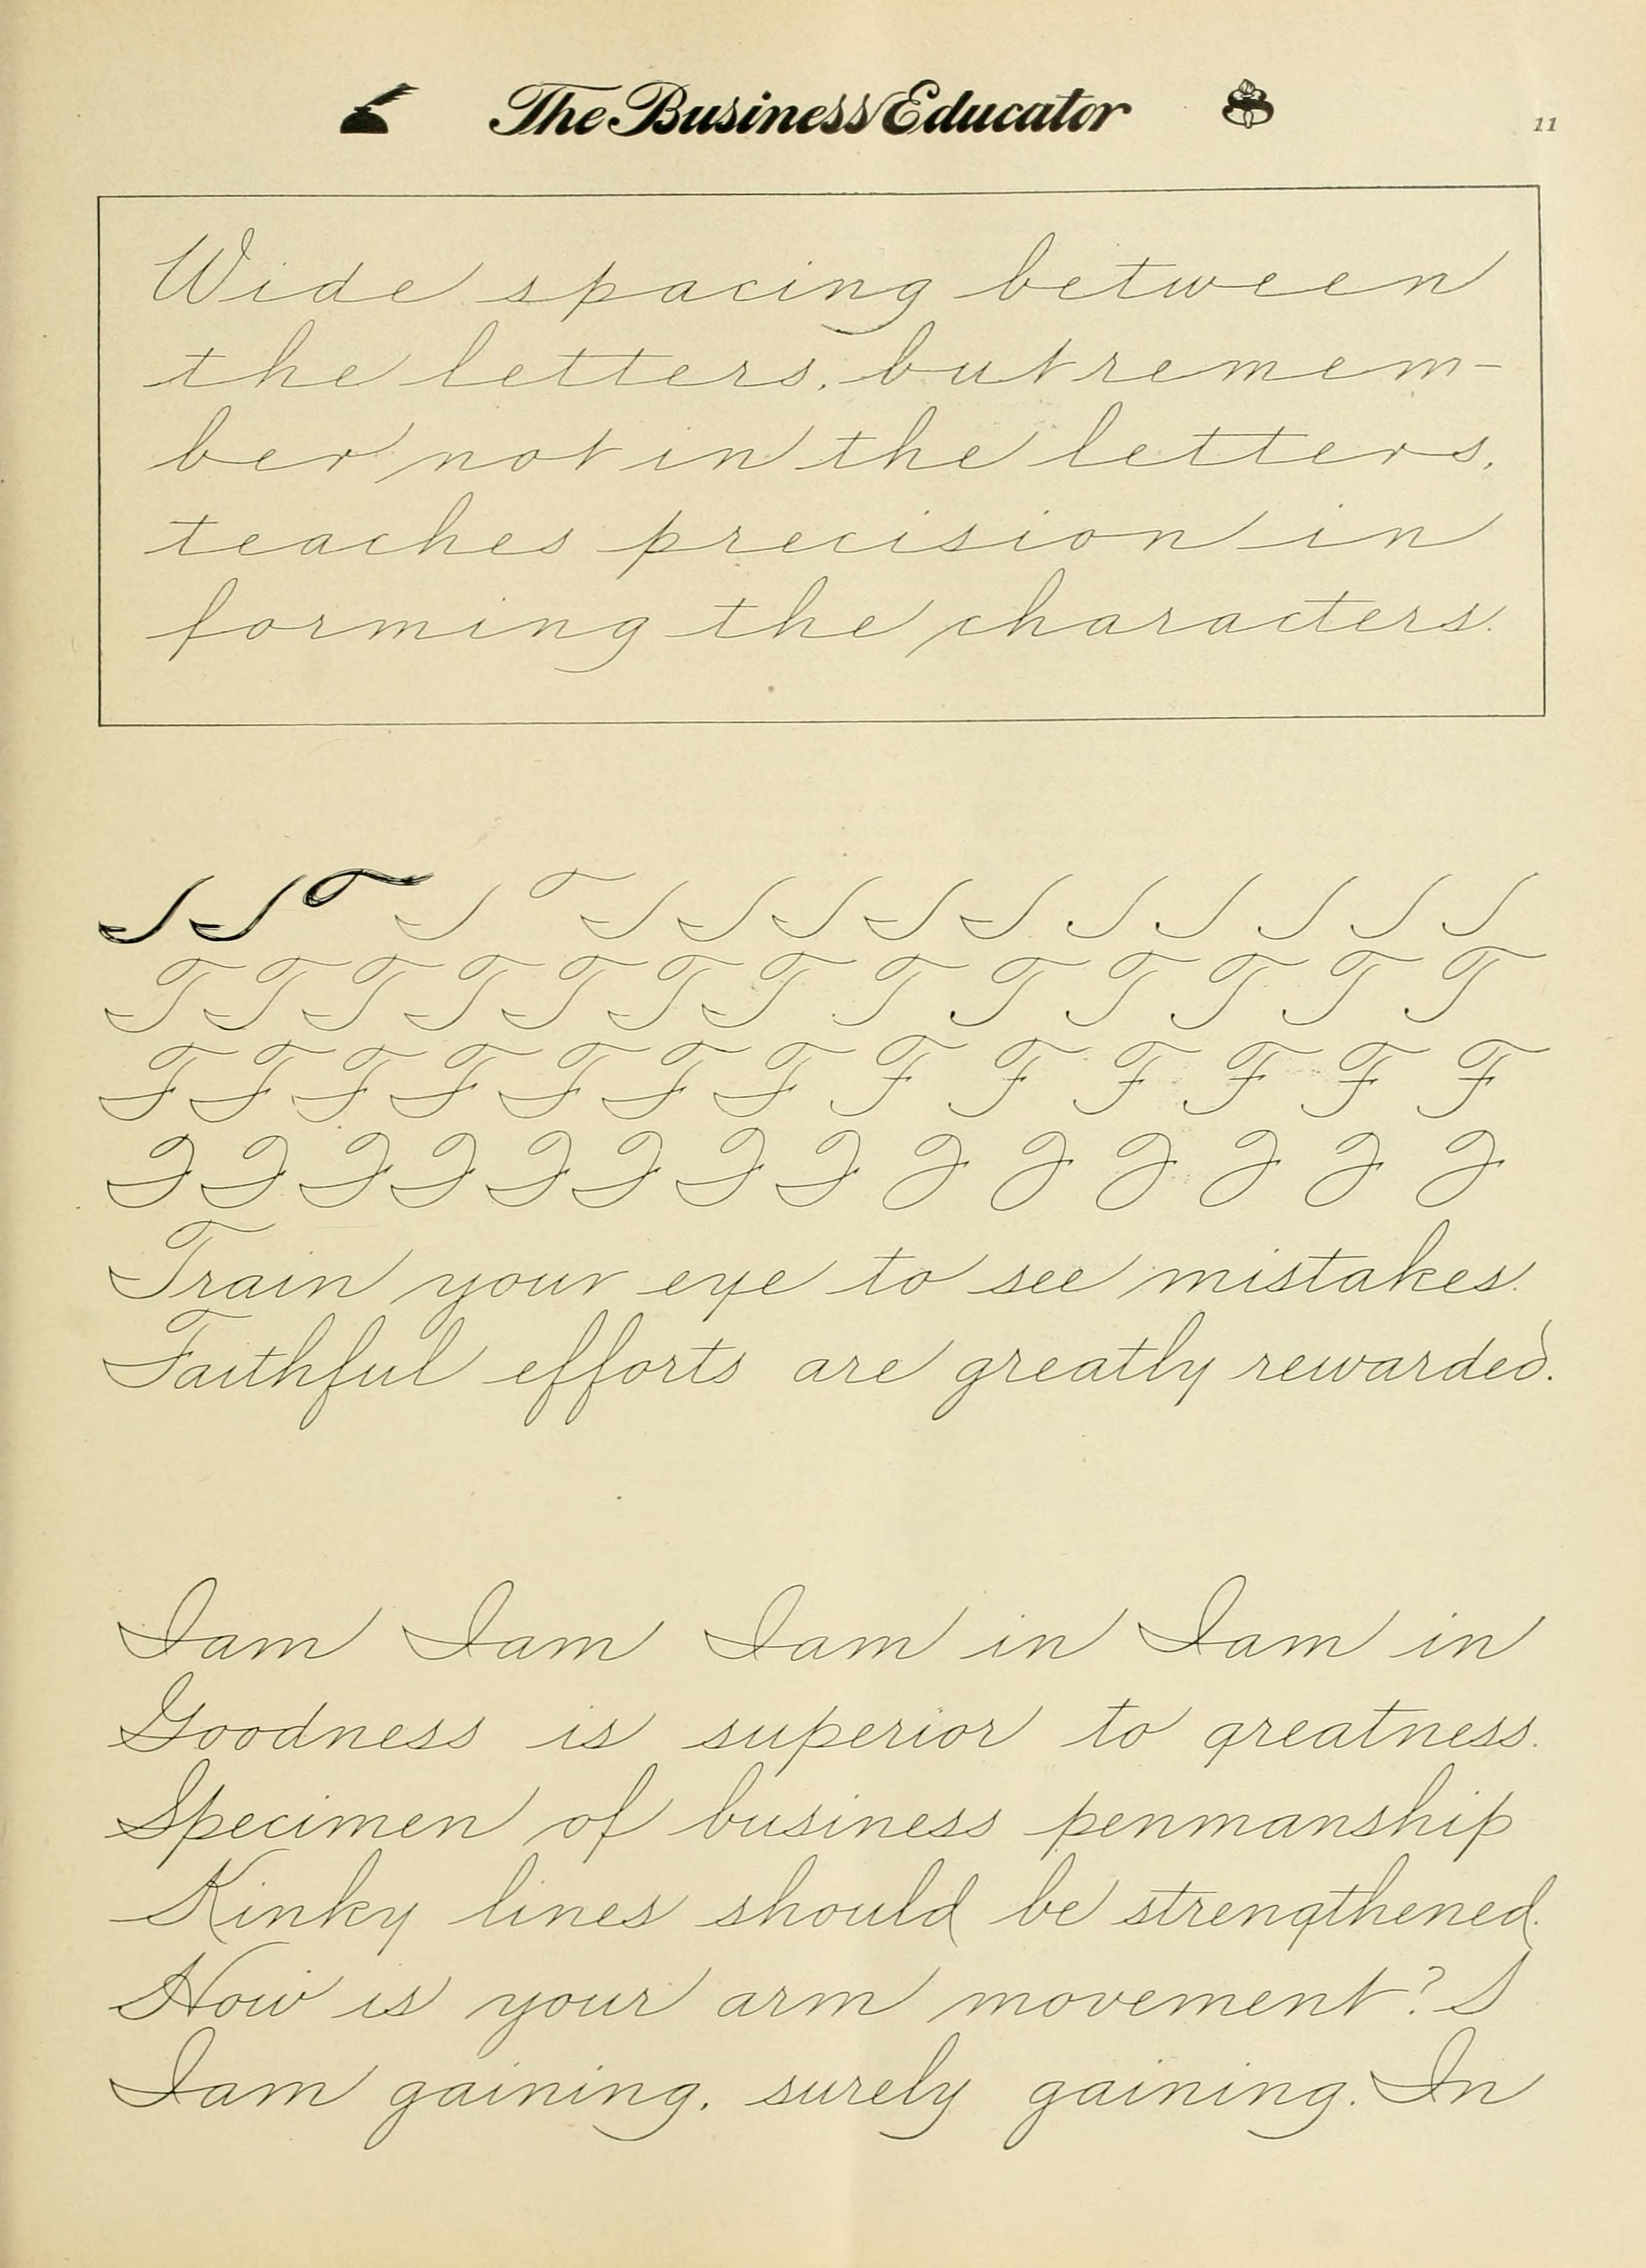 The Business Educator
11
Wide spacing between
the letters, but remem-
ber not in the letters,
teaches precision in
forming the characters.
T T T T T T T T T T T T T
F F F F F F F F F F F F F
J J J J J J J J J J J J J J
Train your eye to see mistakes.
Faithful efforts are greatly rewarded.
I am I am I am in I am in
Goodness is superior to greatness.
Specimen of business penmanship
Kinky lines should be strengthened.
How is your arm movement? S
I am gaining, surely gaining. In